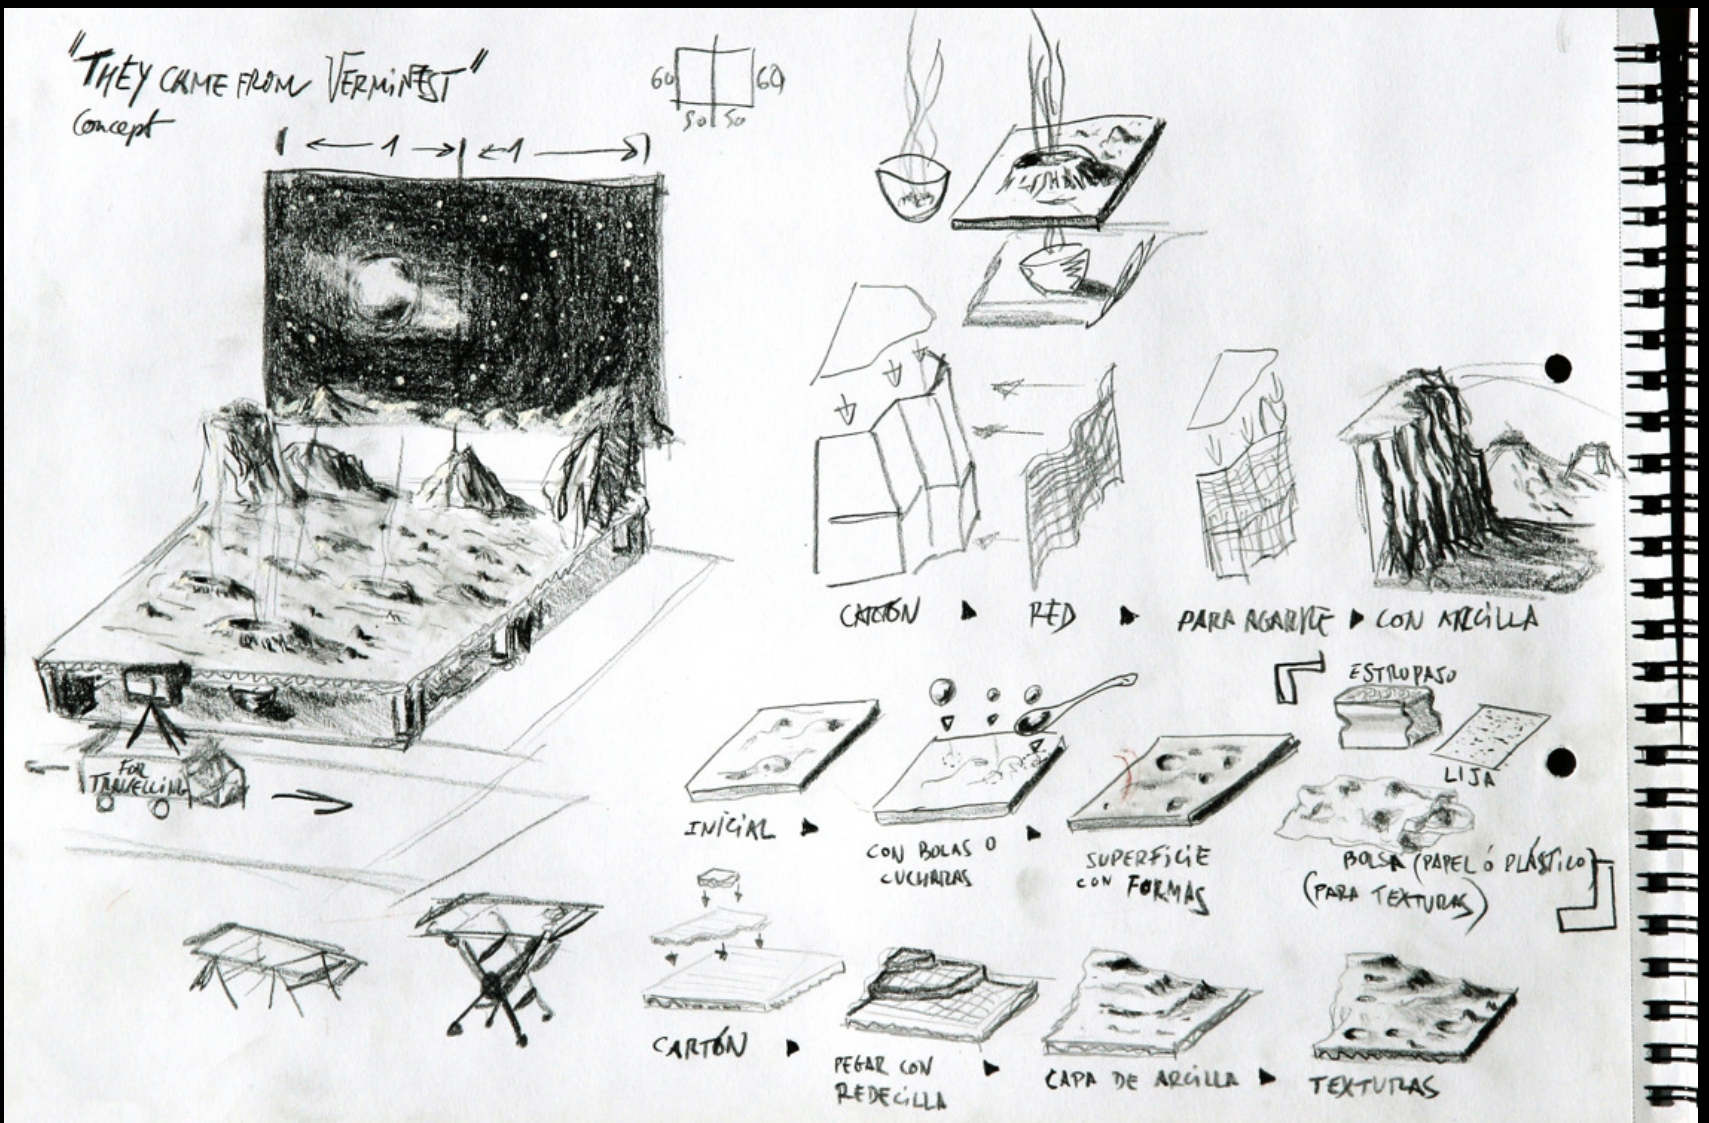 "THEY CAME FROM VERMINEST"
Concept
60 60
50 50
1 1
FOR
TRAVELLING
CARTÓN RED PARA AGARRE CON ARCILLA
ESTROPAJO
LIJA
INICIAL
CON BOLAS O
CUCHARAS
SUPERFICIE
CON FORMAS
BOLSA (PAPEL Ó PLÁSTICO)
(PARA TEXTURAS)
CARTÓN
PEGAR CON
REDECILLA
CAPA DE ARCILLA
TEXTURAS